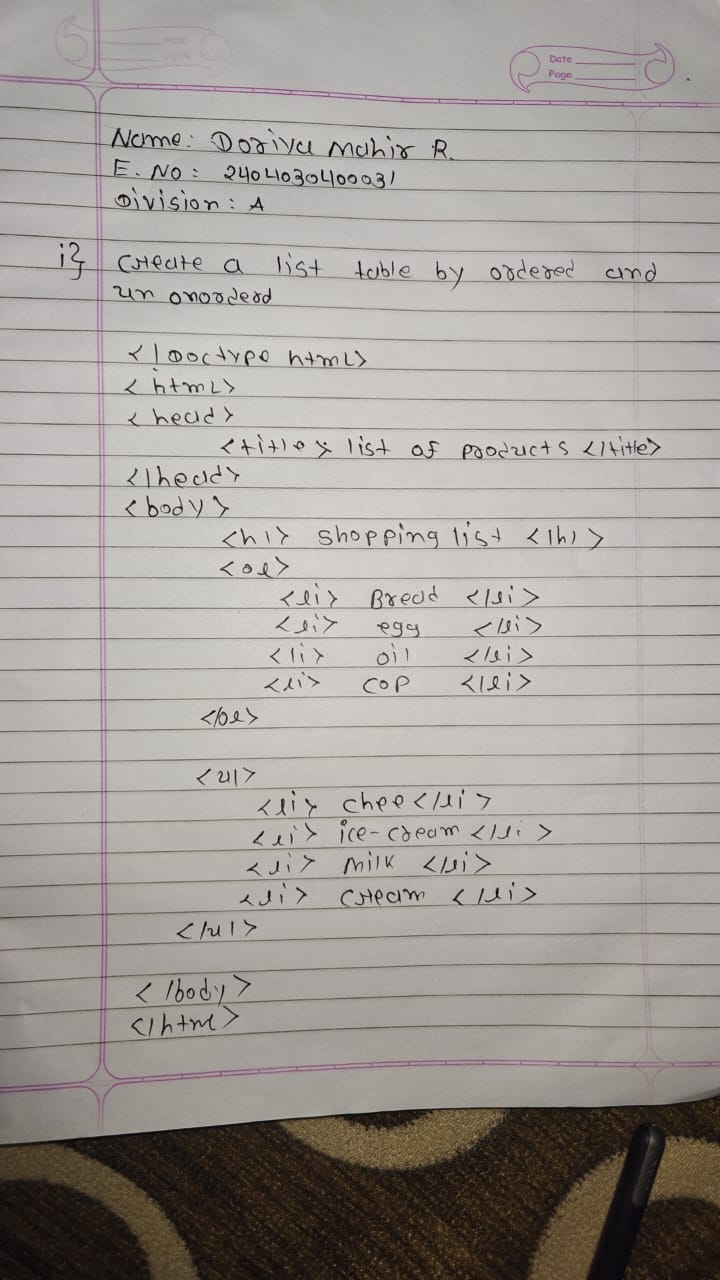 Date
Page
Name: Doriya Mahir R.
E. No: 2404030400031
Division: A
i} Create a list table by ordered and
un onorderd
<!Doctype html>
<html>
<head>
<title> list of products </title>
</head>
<body>
<h1> shopping list </h1>
<ol>
<li> Bread </li>
<li> egg </li>
<li> oil </li>
<li> cop </li>
</ol>
<ul>
<li> chee</li>
<li> ice-cream </li>
<li> milk </li>
<li> cream </li>
</ul>
</body>
</html>